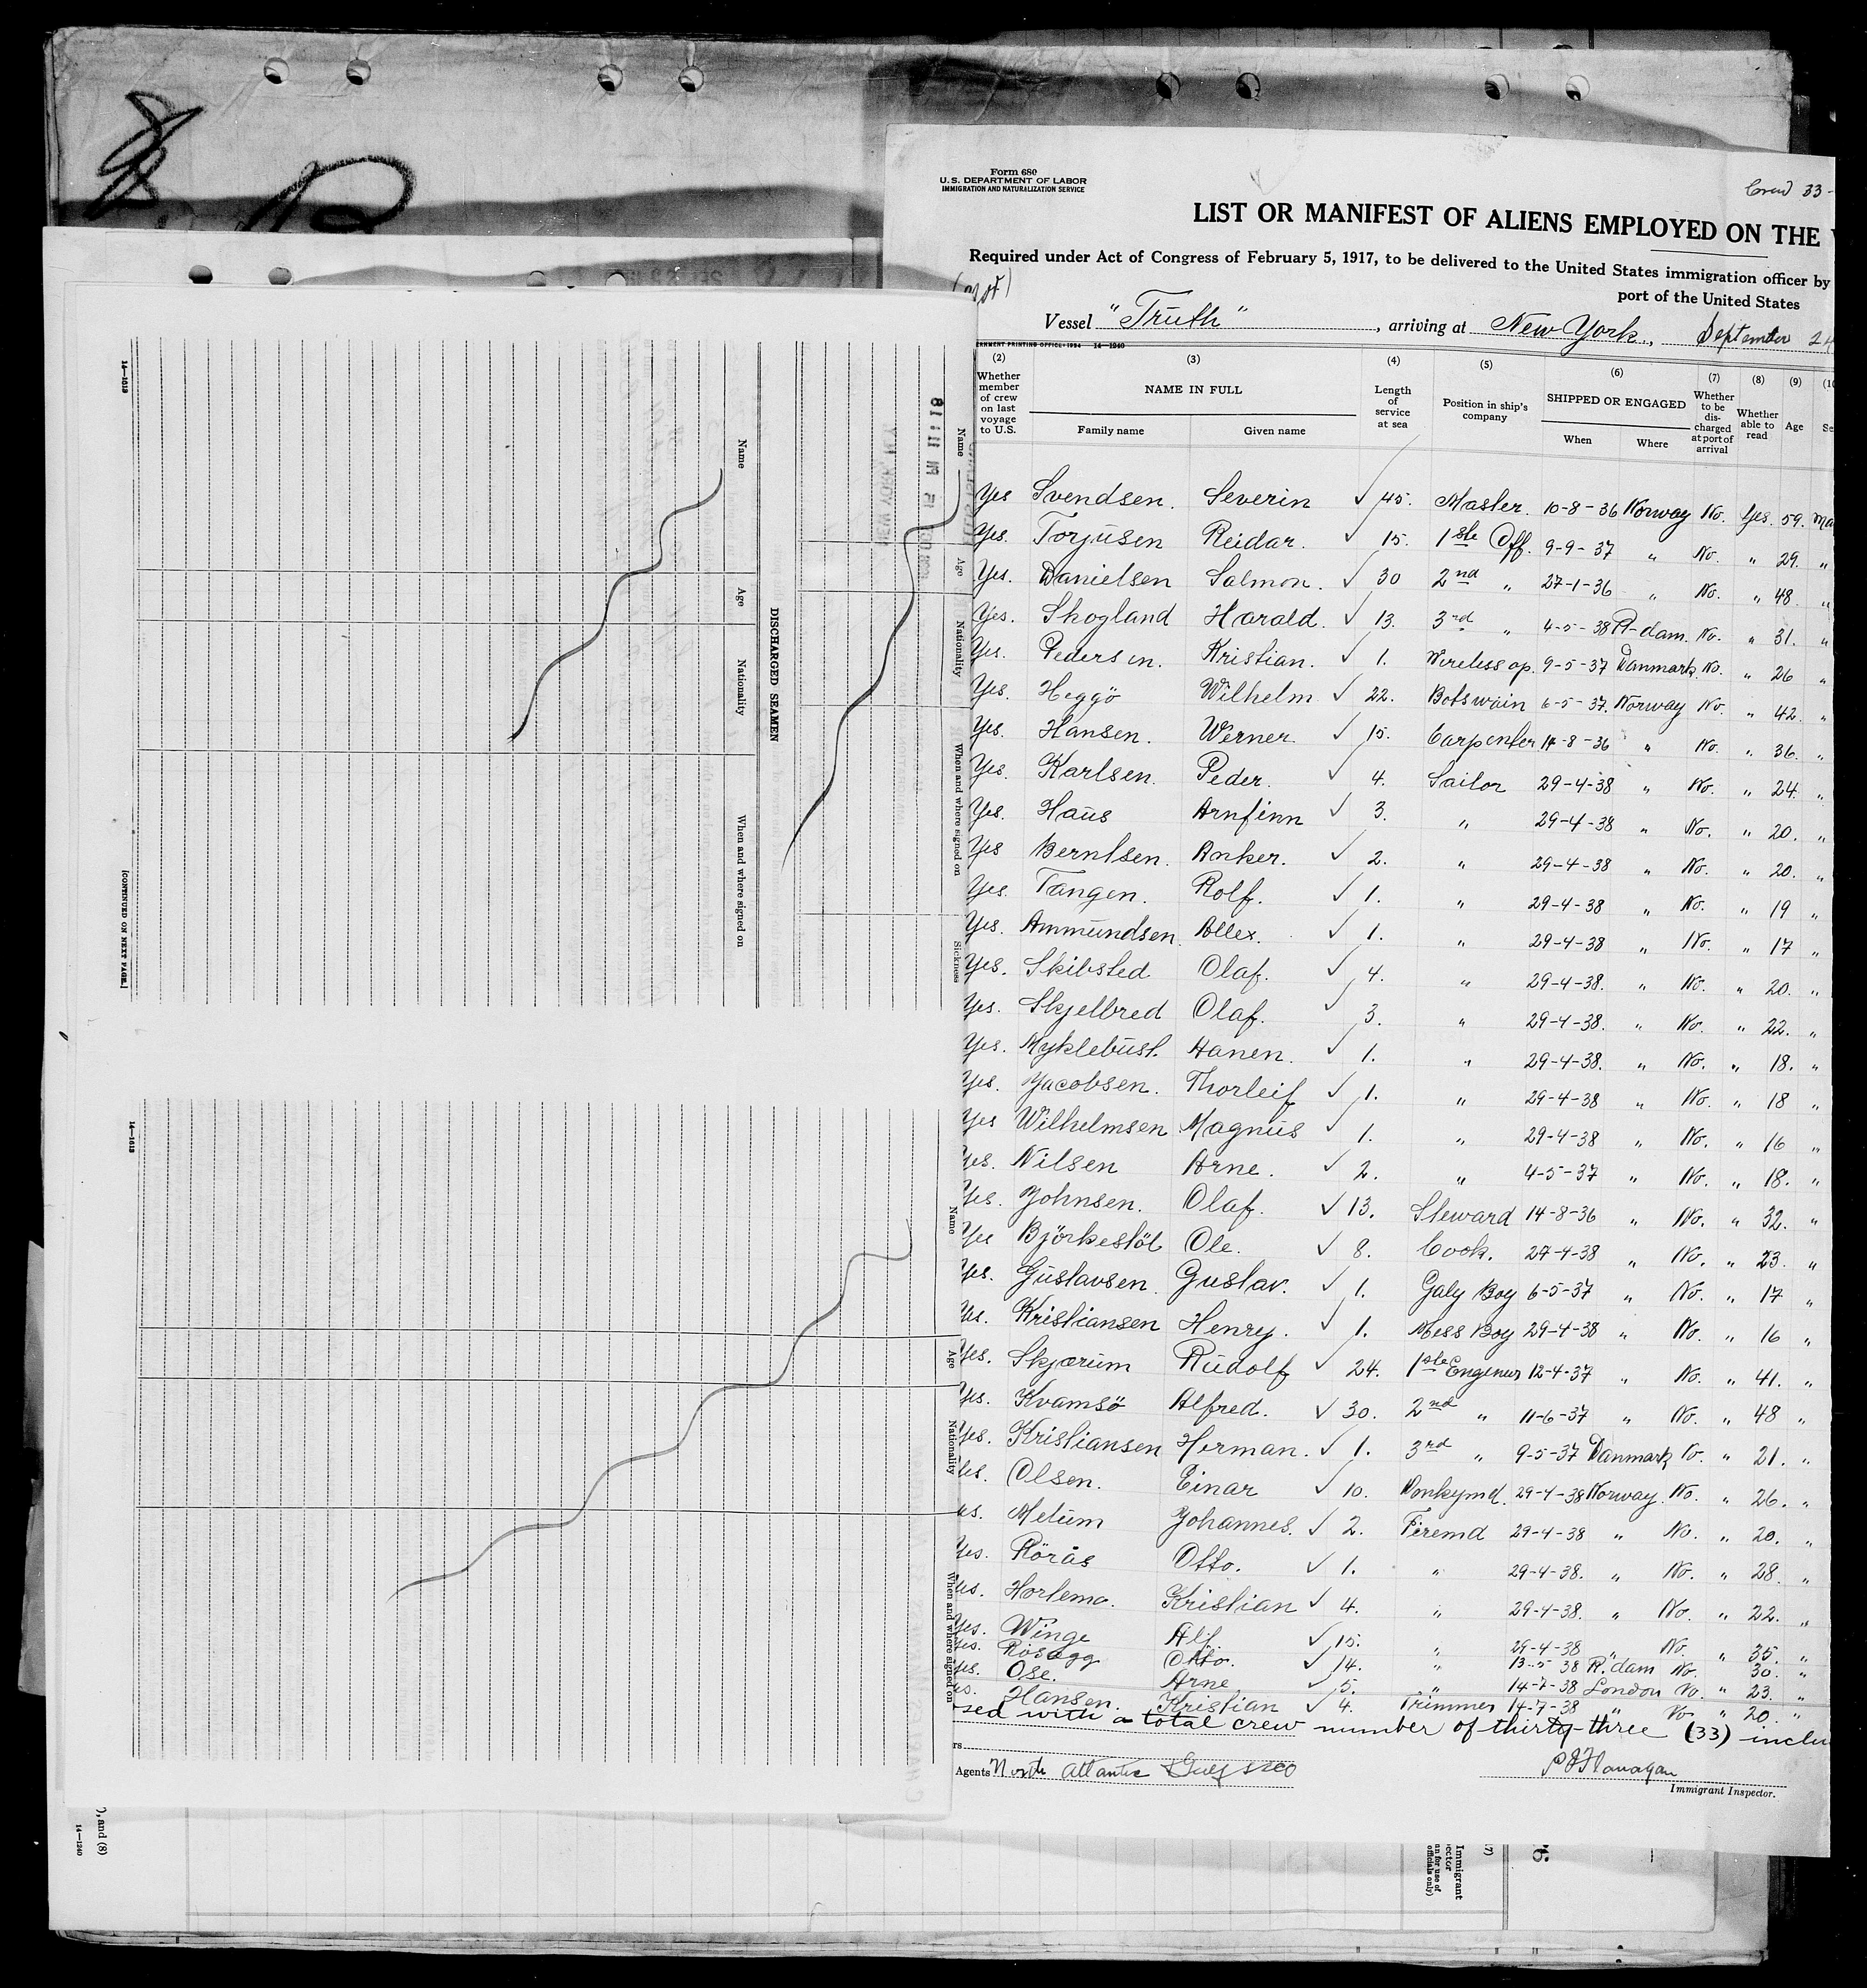 Form 680
U.S. DEPARTMENT OF LABOR
IMMIGRATION AND NATURALIZATION SERVICE
Crew 33-
LIST OR MANIFEST OF ALIENS EMPLOYED ON THE
Required under Act of Congress of February 5, 1917, to be delivered to the United States immigration officer by
port of the United States
Vessel "Truth", arriving at New York., September 24
14—1240
(2) (3) (4) (5) (6) (7) (8) (9)
Whether member of crew on last voyage to U.S. NAME IN FULL Length of service at sea Position in ship's company SHIPPED OR ENGAGED Whether to be discharged at port of arrival Whether able to read Age
Family name Given name When Where
Yes Svendsen. Severin ✓ 45. Master. 10-8-36 Norway No. Yes. 59. Ma
Yes. Torjusen Reidar. ✓ 15. 1ste Off. 9-9-37 " No. " 29. "
Yes. Danielsen Salmon. ✓ 30 2nd " 27-1-36 " No. " 48. "
Yes. Skogland Harald. ✓ 13. 3rd " 4-5-38 R-dam. No. " 31. "
Yes. Pedersen. Kristian. ✓ 1. Wireless op. 9-5-37 Danmark No. " 26 "
Yes. Heggö Wilhelm ✓ 22. Botswain 6-5-37. Norway No. " 42. "
Yes. Hansen. Werner. ✓ 15. Carpenter 14-8-36 " No. " 36. "
Yes. Karlsen. Peder. ✓ 4. Sailor 29-4-38 " No. " 24. "
Yes. Haus Arnfinn ✓ 3. " 29-4-38 " No. " 20. "
Yes Berntsen. Anker. ✓ 2. " 29-4-38 " No. " 20. "
Yes. Tangen. Rolf. ✓ 1. " 29-4-38 " No. " 19 "
Yes. Ammundsen. Allex. ✓ 1. " 29-4-38 " No. " 17 "
Yes. Skibsted Olaf. ✓ 4. " 29-4-38. " No. " 20. "
Yes. Skjelbred Olaf. ✓ 3. " 29-4-38. " No. " 22. "
Yes. Myklebust. Hanen. ✓ 1. " 29-4-38. " No. " 18. "
Yes. Yacobsen. Thorleif ✓ 1. " 29-4-38 " No. " 18 "
Yes Wilhelmsen Magnus ✓ 1. " 29-4-38 " No. " 16 "
Yes. Nilsen Arne. ✓ 2. " 4-5-37 " No. " 18. "
Yes. Yohnsen. Olaf. ✓ 13. Steward 14-8-36 " No. " 32. "
Yes Björkestöl Ole. ✓ 8. Cook. 27-4-38 " No. " 23. "
Yes. Gustavsen. Gustav. ✓ 1. Galy Boy 6-5-37 " No. " 17 "
Yes. Kristiansen Henry. ✓ 1. Mess Boy 29-4-38 " No. " 16 "
Yes. Skjærum Rudolf ✓ 24. 1ste Engener 12-4-37 " No. " 41. "
Yes. Kvamsö Alfred. ✓ 30. 2nd " 11-6-37 " No. " 48 "
Yes. Kristiansen Herman. ✓ 1. 3rd " 9-5-37 Danmark No. " 21. "
Yes. Olsen. Einar ✓ 10. Donkymd. 29-4-38 Norway. No. " 26. "
es. Metum Yohannes. ✓ 2. Firemd 29-4-38 " No. " 20. "
Yes. Rörås Otto. ✓ 1. " 29-4-38. " No. " 28. "
Yes. Hortemo. Kristian ✓ 4. " 29-4-38. " No. " 22. "
Yes. Winge Alf. ✓ 15. " 29-4-38 " No. " 35. "
Yes. Rosagg Otto. ✓ 14. " 13-5-38 R.dam No. " 30. "
Yes. Ose. Arne. ✓ 5. " 14-7-38 London No. " 23. "
es. Hansen. Kristian ✓ 4. Trimmer 14-7-38 " No " 20. "
sed with a total crew number of thirty-three (33) inclu
Agents North Atlantic & Gulf SSCo
P J Flanagan
Immigrant Inspector.
14—1613
[CONTINUED ON NEXT PAGE.]
Name
Age
Nationality
When and where signed on
DISCHARGED SEAMEN
Name
Age
Nationality
When and where signed on
Sickness
14—1613
Name
Age
Nationality
When and where signed on
), and (8)
14—1240